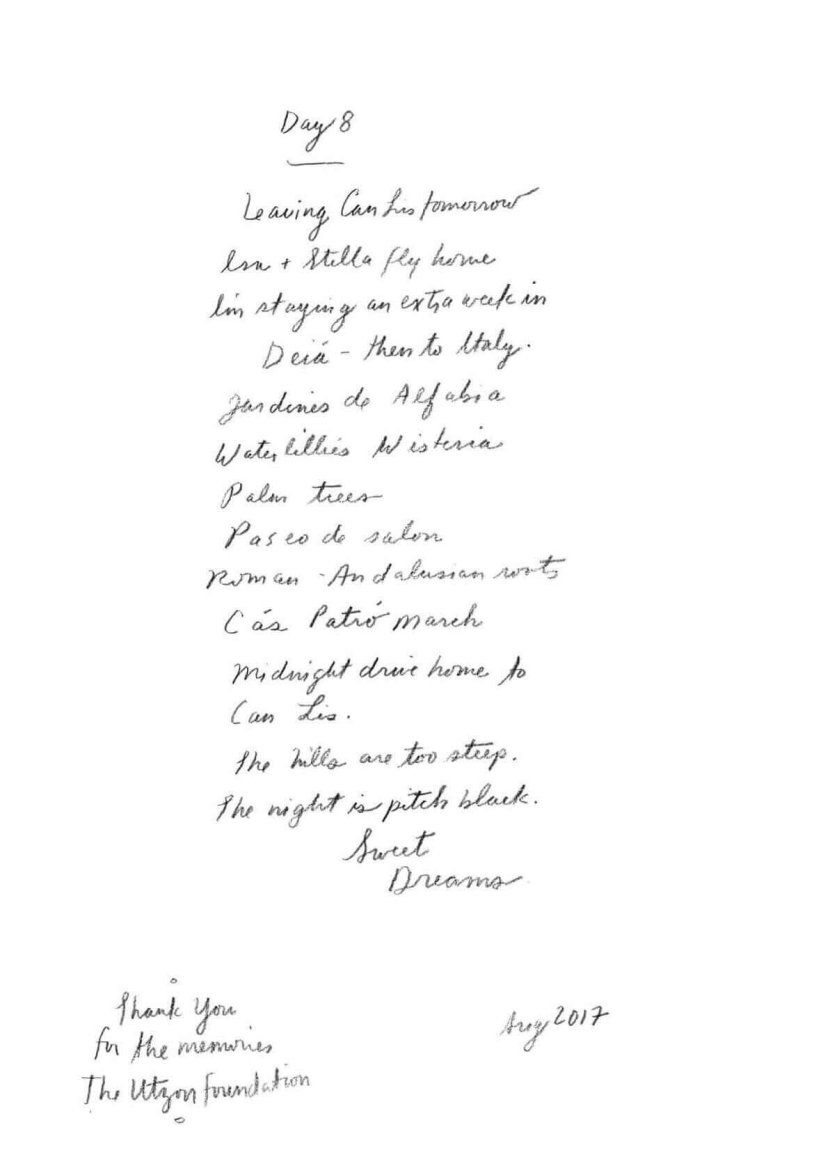 Day 8
Leaving Can Lis tomorrow
+ Stella fly home
I'm staying an extra week in
Deiá - then to Italy.
Jardines de Alfabia
Waterlillies Wisteria
Palm trees
Paseo de salon
Roman - Andalusian roots
Cás Patró March
Midnight drive home to
Can Lis.
The hills are too steep.
The night is pitch black.
Sweet
Dreams
Thank You
for the memories
The Utzon Foundation
Aug 2017